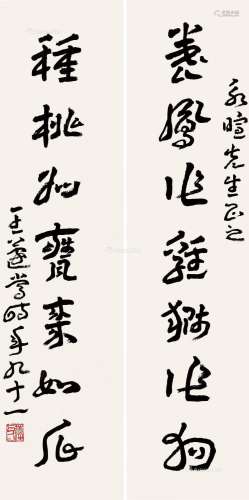 永暄先生正之
鳳作雞獅作狗
種桃如甕棗如瓜
王蘧常時年九十一